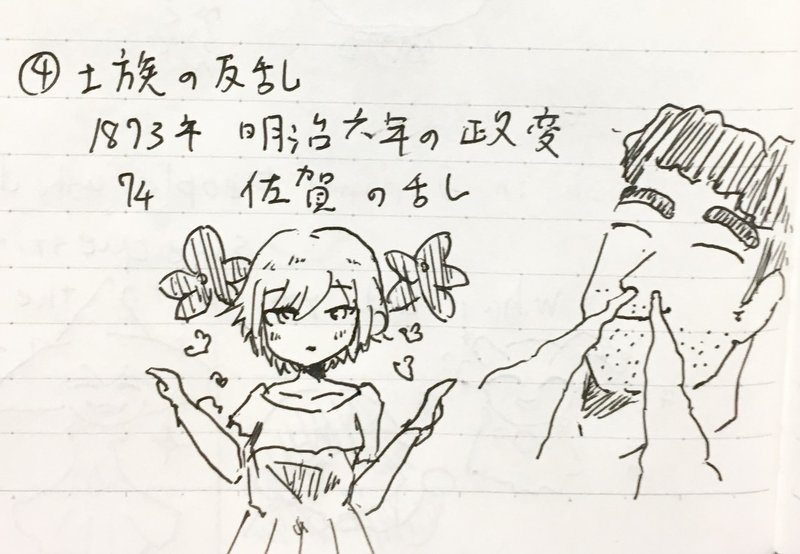 ④ 士族の反乱
1873年 明治六年の政変
74 佐賀の乱